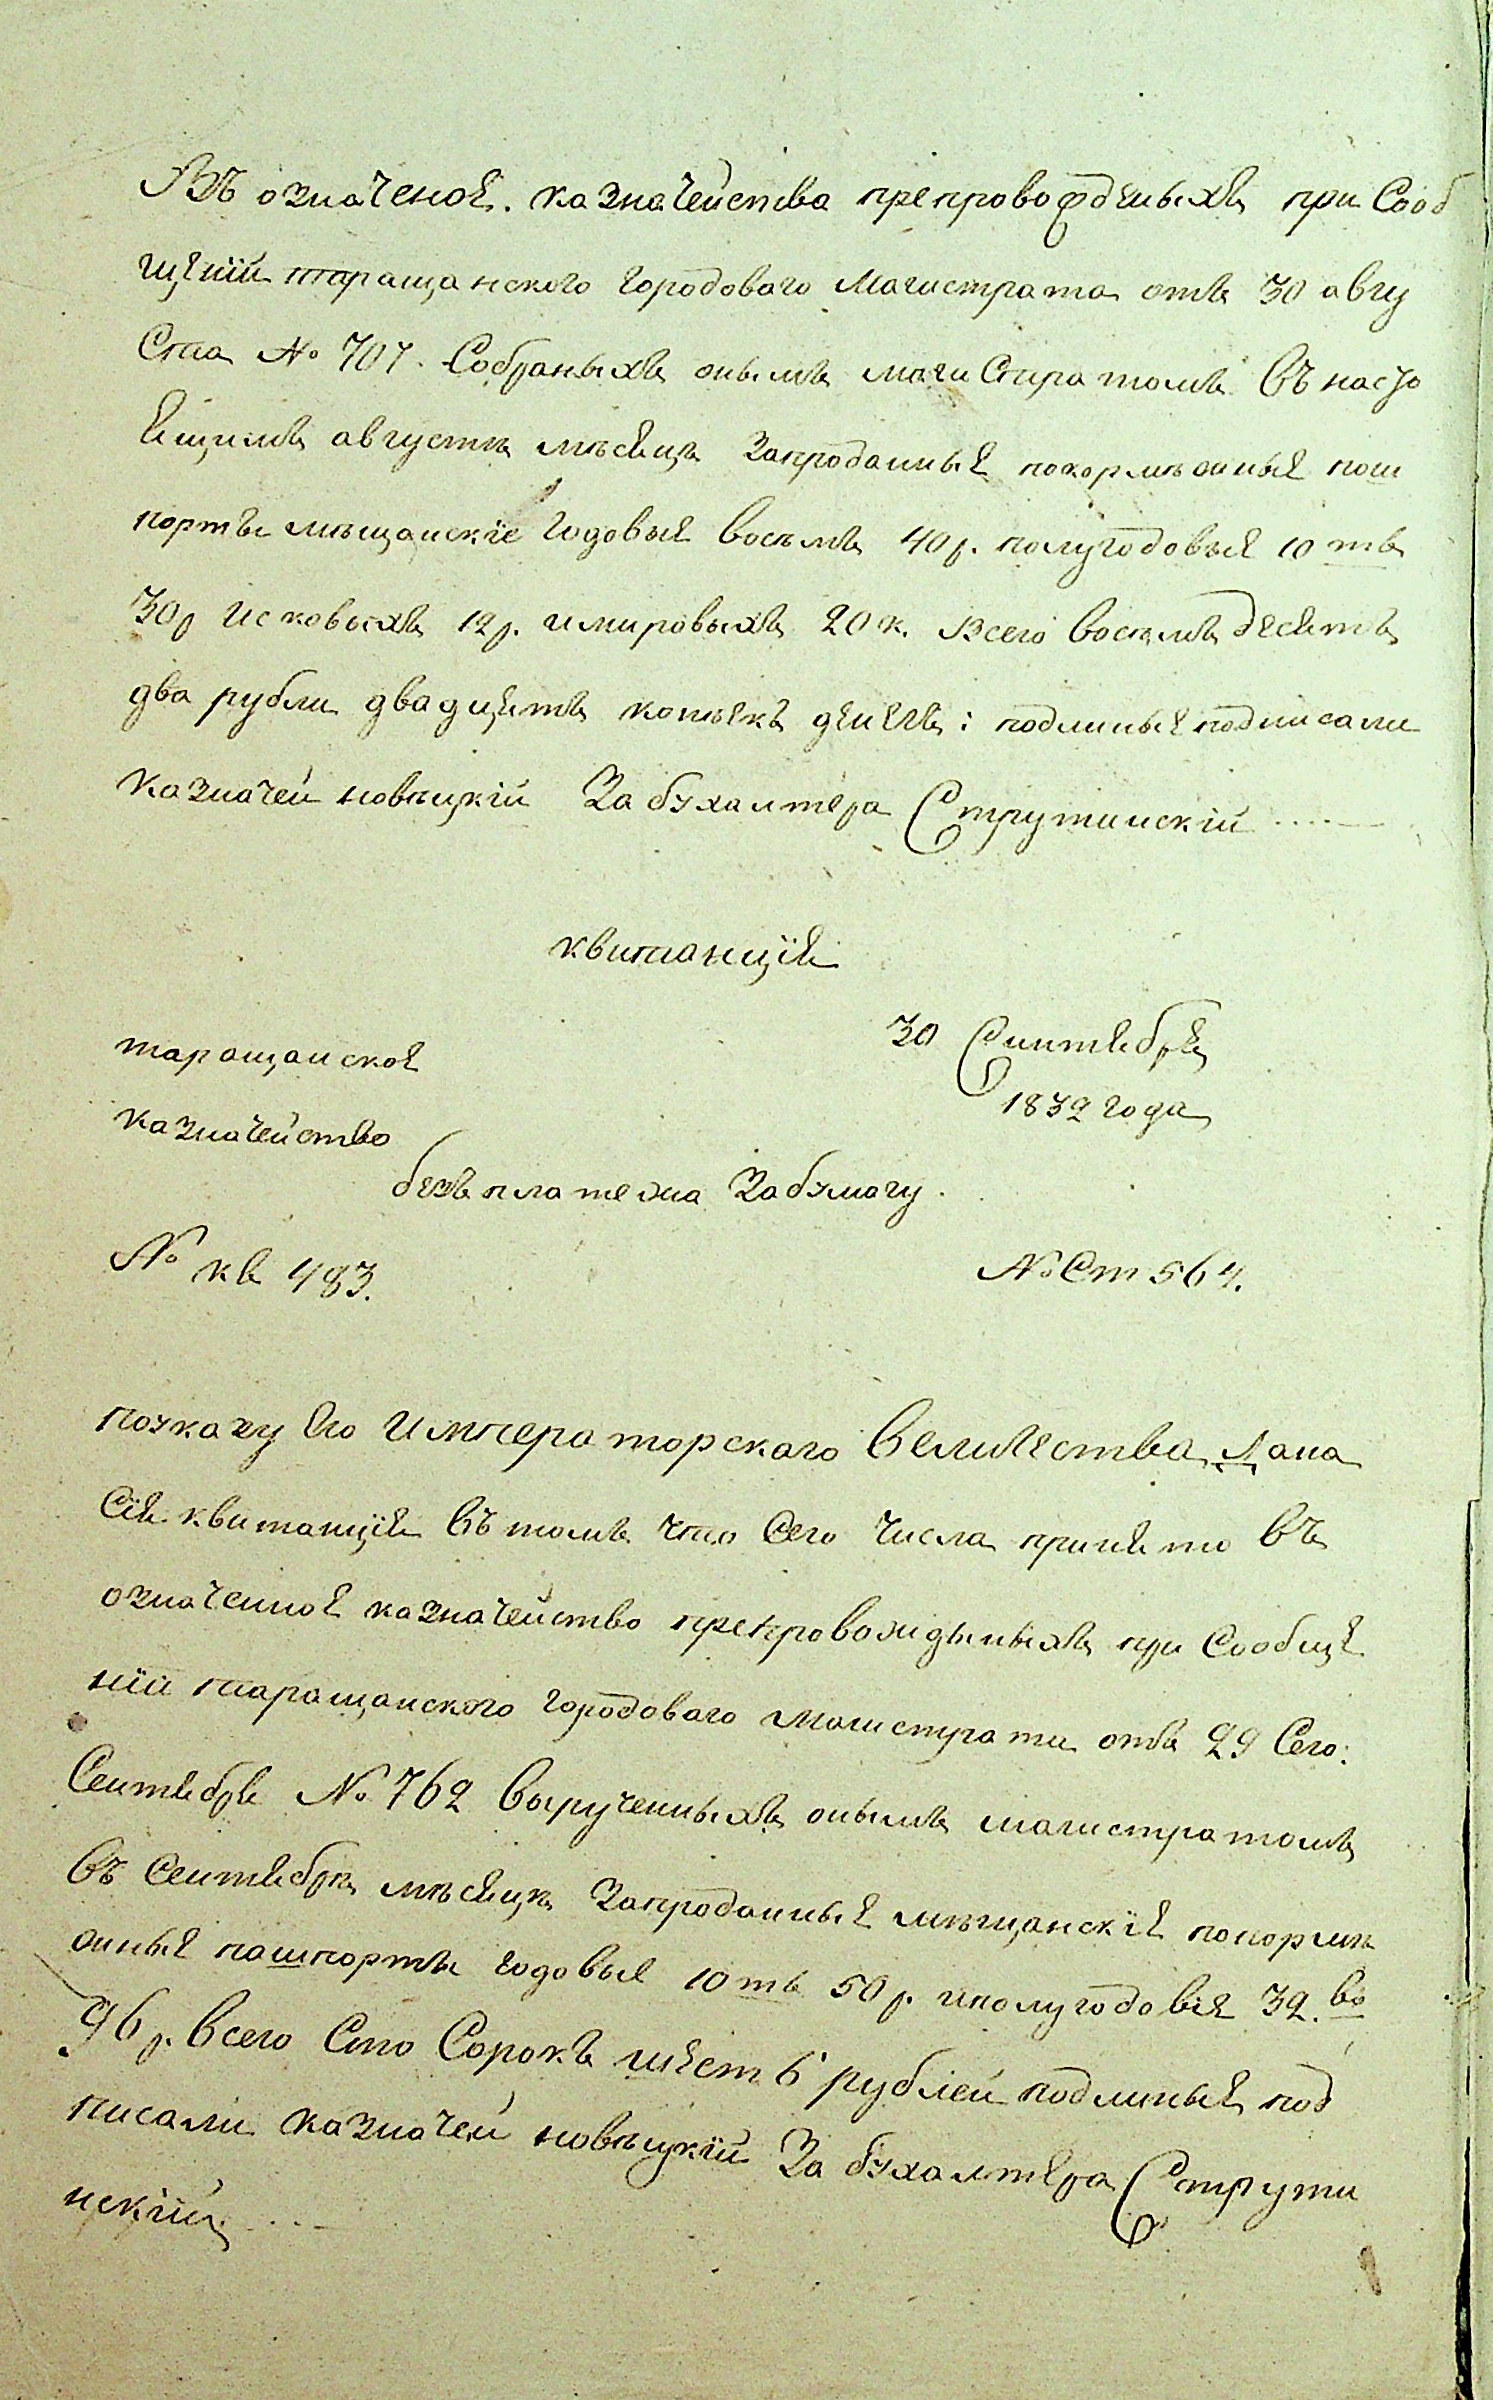 Въ означеное. казначейства препровожденыхъ при Сооб
щенїи таращанского городоваго Магистрата отъ 30 авгу
Ста № 707. Собраныхъ онымъ магистратомъ въ насто
ящимъ августѣ мѣсяцѣ запроданные покормѣжные паш
порты мѣщанскїе годовые восьмъ 40 р. полугодовые 10 ть
30 р исковыхъ 12 р. имировыхъ 20 к. Всего восемъ десятъ
два рубли двадцять копѣекъ денегъ: подлиные подписали
казначей новѣцкїй За бухалтера Струтинскїй
квитанцїя
таращанское
казначейство
30 Сентября
1832 года
безъ платежа Забумагу.
№ кв 483.
№ Ст 564.
поуказу Его Императорскаго Величества Дана
Сїя квитанцїя въ томъ что Сего числа принято въ
означенное казначейство препровожденыхъ при Сообще
нїи таращанского городоваго магистрата отъ 29 Сего:
Сентября № 762 вырученныхъ онымъ магистратомъ
въ Сентябрѣ мѣсяцѣ запроданные мѣщанскїе покормѣ
жные пашпорты годовые 10 ть 50 р. иполугодовїе 32. во
96 р. всего Сто Сорокъ шесть рублей подлиные под
писали казначей новѣцкїй За бухалтера Струти
нскїй